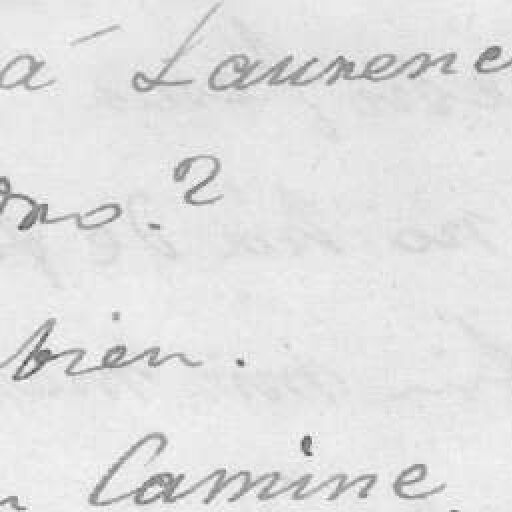 à Laurene
bien.
Camine